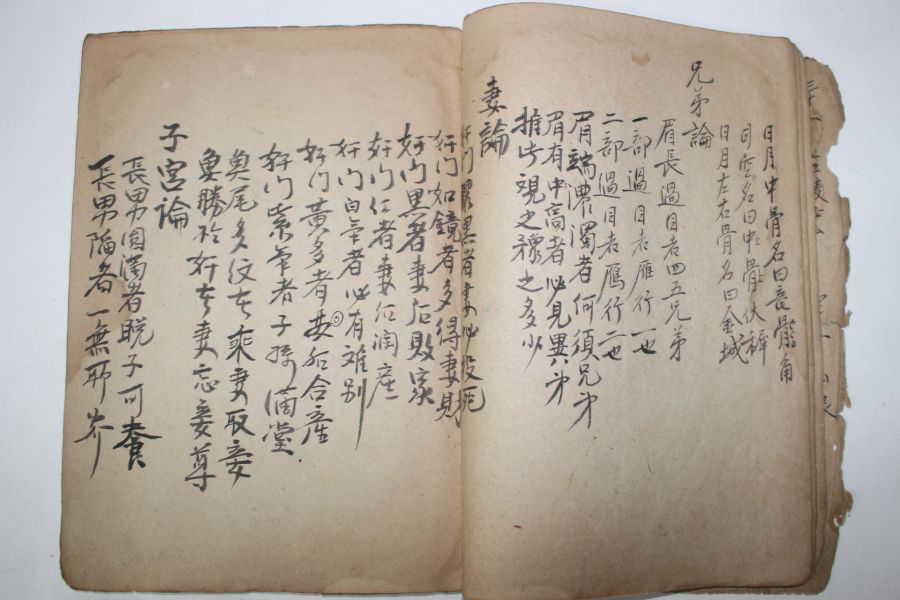 日月中骨名曰
名曰中骨伏犀
日月左右骨名曰金城
兄弟論
眉長過目者四五兄弟
一部過目者雁行一也
二部過目者雁行二也
眉端濃濁者何須兄弟
眉有中高者必見異弟
推此視之多少
妻論
奸門黑者妻必投死
奸門如鏡者多得妻財
奸門黑者妻后敗家
奸门仁者妻后潤産
奸门白气者必有难别
奸门黄多者后合産
奸门紫气者子孫滿堂
魚尾多紋者棄妻取妾
魚勝於奸者妻忘妾尊
子宮論
長男圓滿者脱子可養
長男陷者一無耶